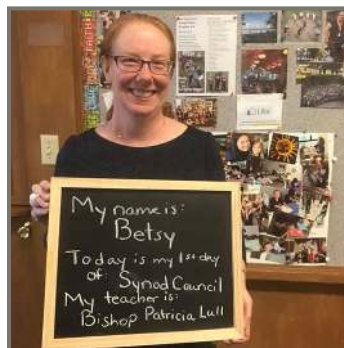 FAITH
Like
My name is:
Betsy
Today is my 1st day
of: Synod Council
My teacher is:
Bishop Patricia Lull